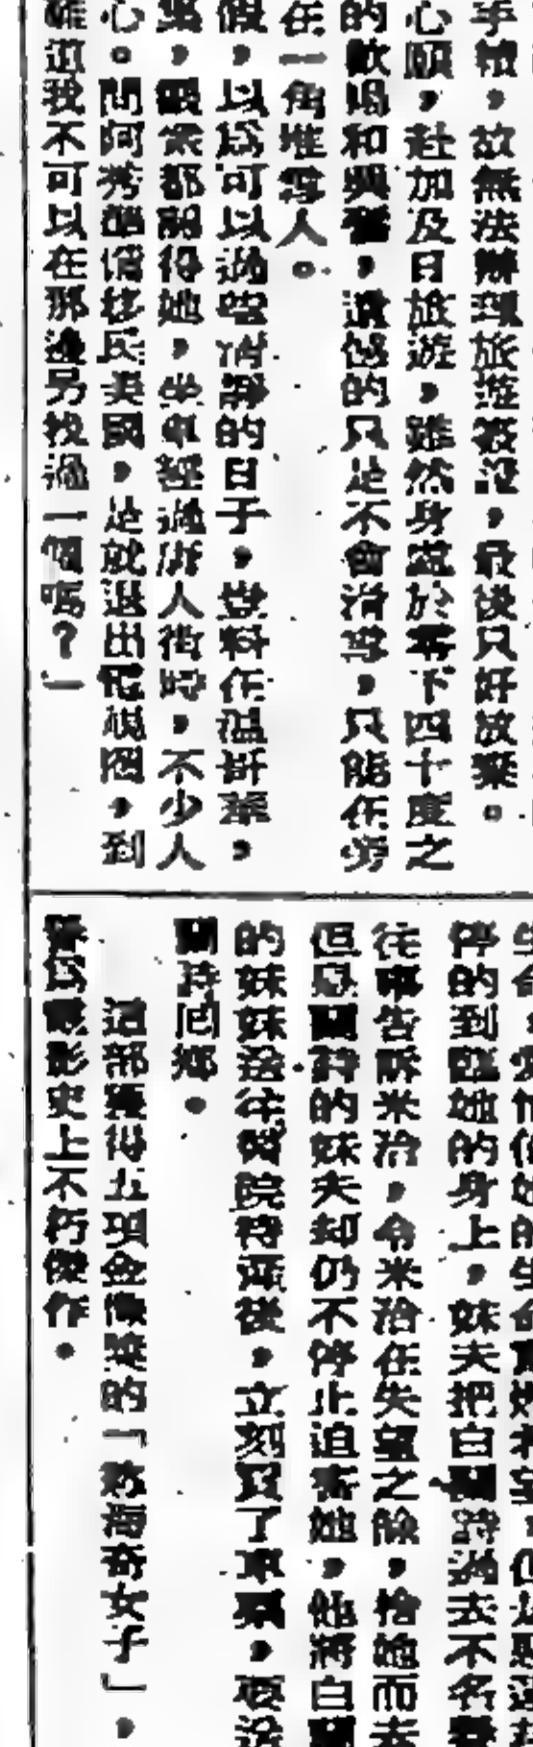 手續，故無法辦理旅遊簽證，最後只好放棄。
心願，赴加及日旅遊，雖然身處於零下四十度之
的歡唱和興奮，遺憾的只是不會滑雪，只能在旁
在一角堆雪人。
假，以為可以過些清靜的日子，豈料在溫哥華，
觀眾都認得她，坐車經過唐人街時，不少人
心。問阿秀儷偕移民美國，是就退出電視圈，到
難道我不可以在那邊另找過一個嗎？」
停的到臨她的身上，妹夫把白蘭詩過去不名譽
往事告訴米治，令米治在失望之餘，捨她而去
但是蘭詩的妹夫却仍不停止迫害她，他將白蘭
的妹妹送往醫院待產後，立刻買了車票，要送
蘭詩回鄉。
這部獲得五項金像獎的「慾海奇女子」，
譽為電影史上不朽傑作。